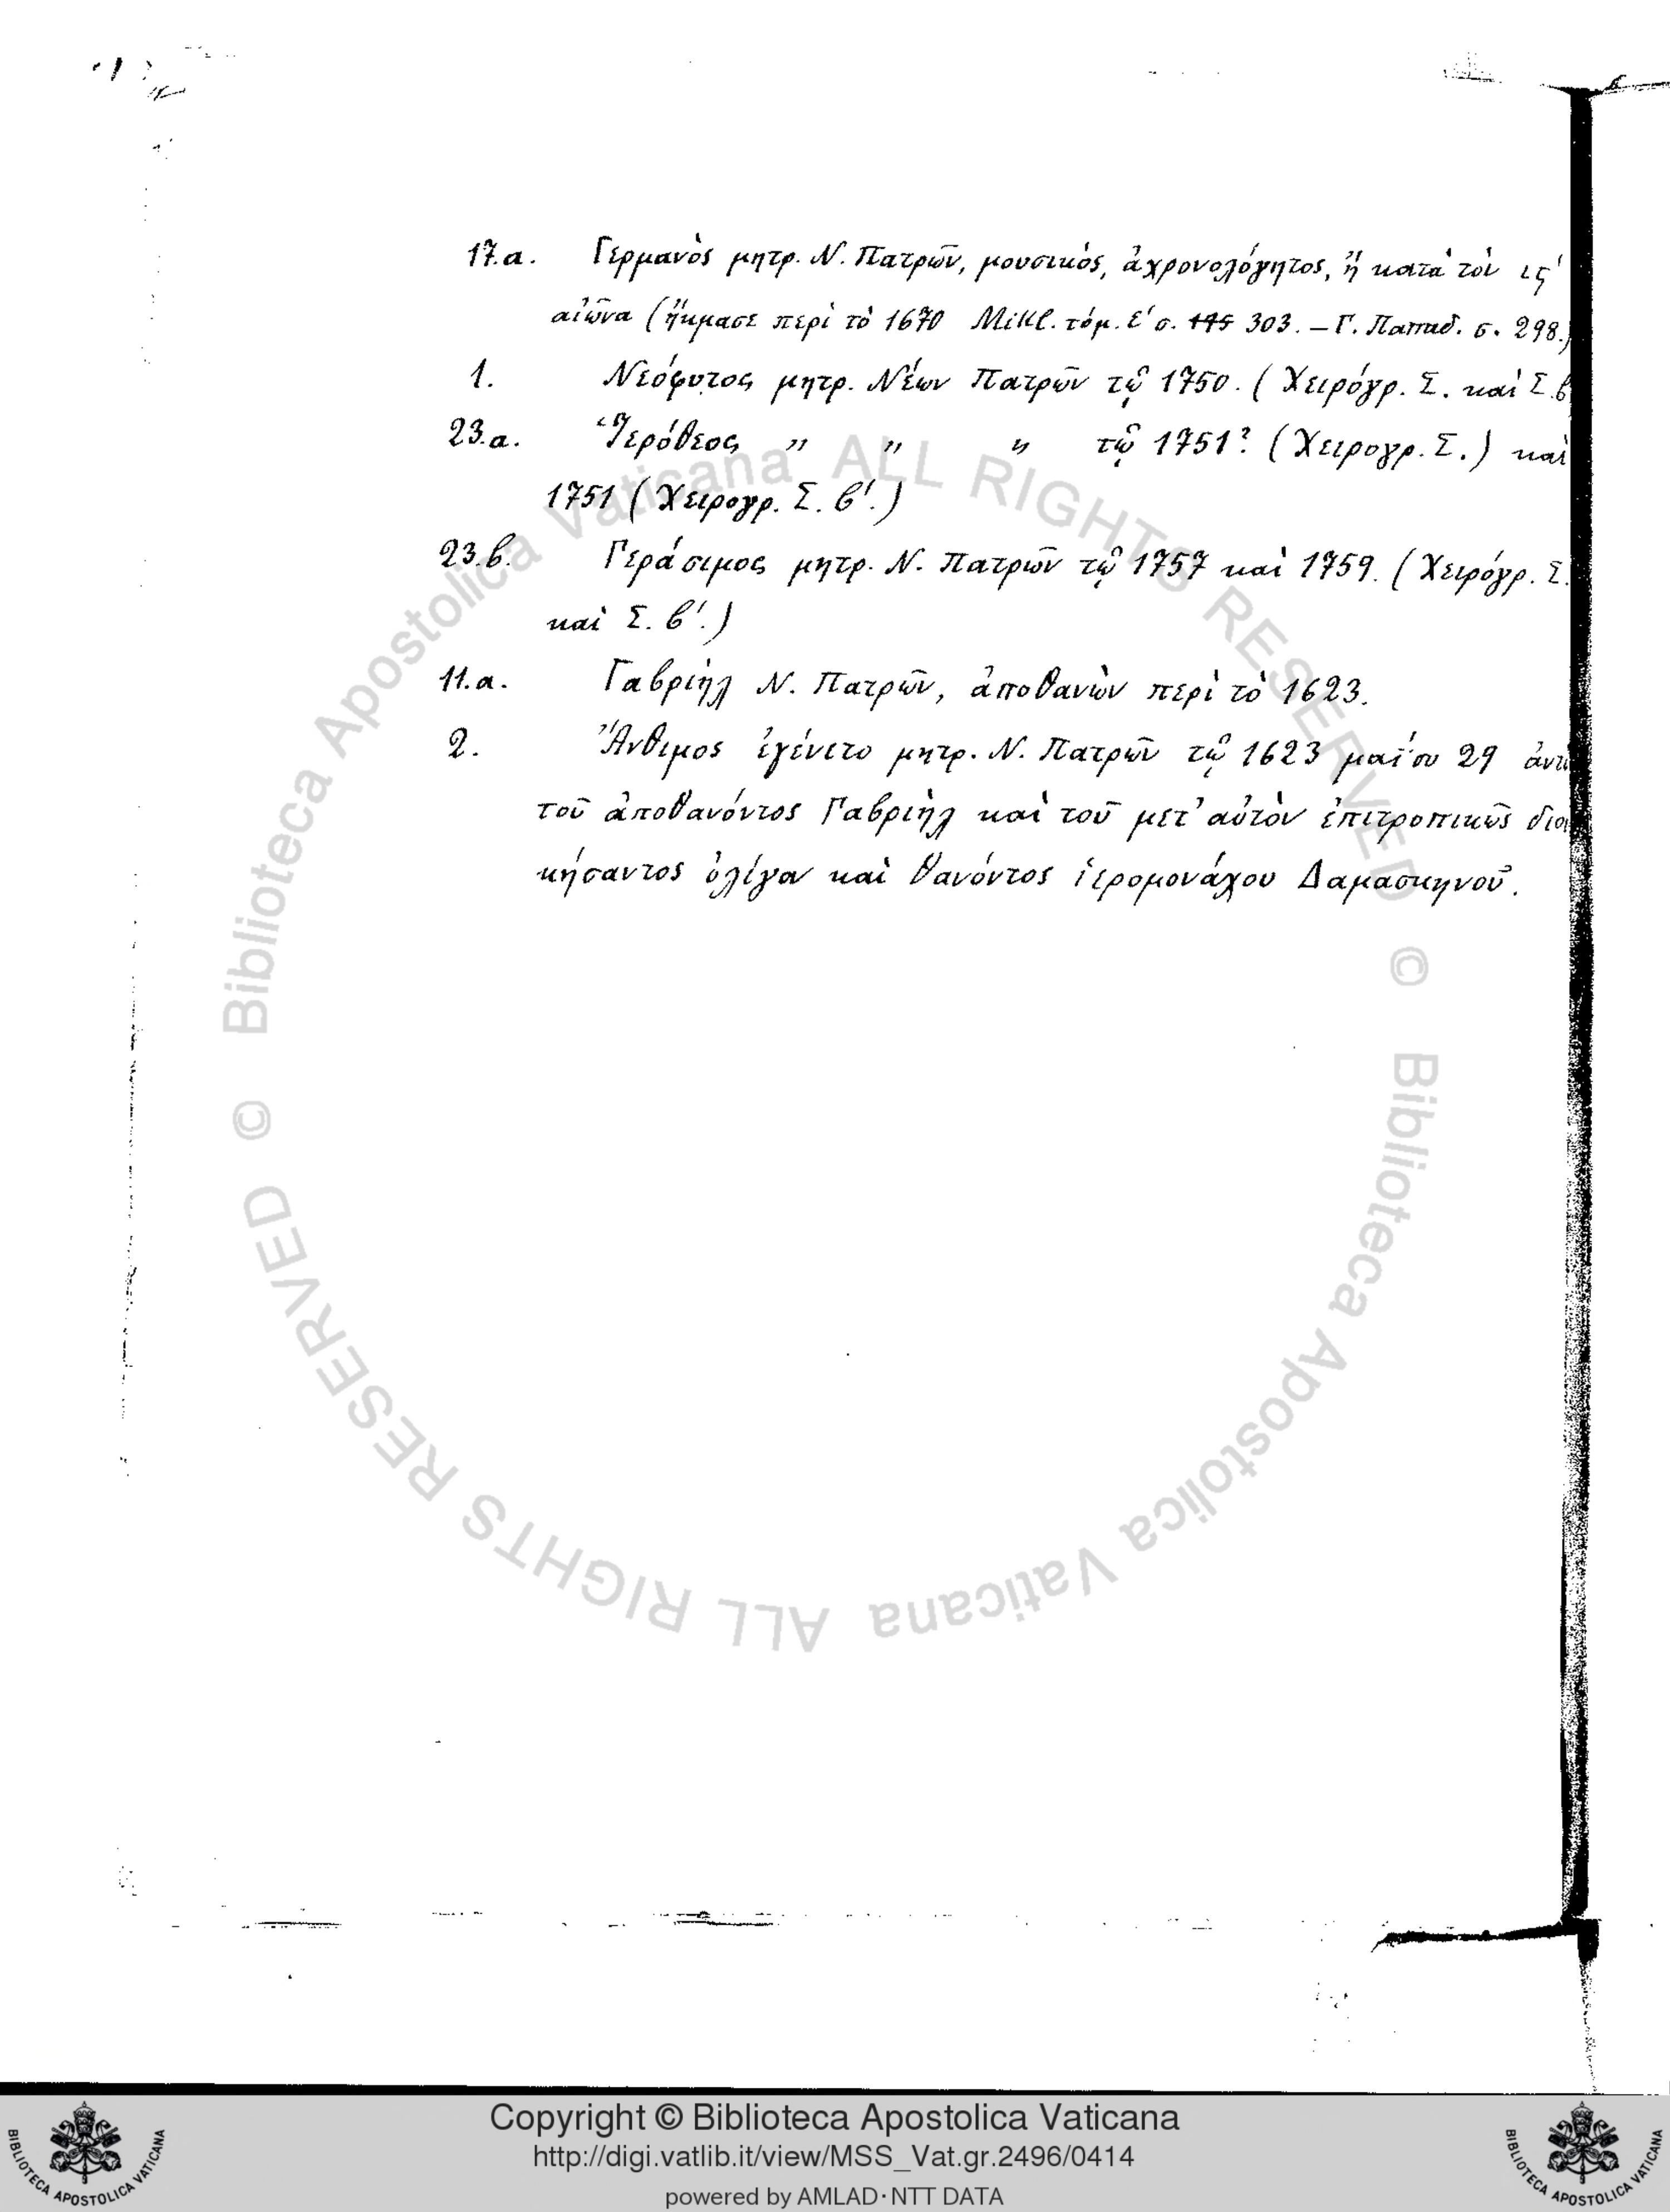 17.α. Γερμανὸς μητρ. Ν. Πατρῶν, μουσικός, ἀχρονολόγητος, ἢ κατὰ τὸν ιϛ′
αἰῶνα (ἤκμασε περὶ τὸ 1670 Mikl. τόμ. ε′ σ. 303. – Γ. Παπαδ. σ. 298.)
1. Νεόφυτος μητρ. Νέων Πατρῶν τῷ 1750. (Χειρόγρ. Σ. καὶ Σ.β
23.α. Ἱερόθεος „ „ „ τῷ 1751? (Χειρογρ. Σ.) καὶ
1751 (Χειρογρ. Σ. β′.)
23.β. Γεράσιμος μητρ. Ν. Πατρῶν τῷ 1757 καὶ 1759. (Χειρόγρ. Σ.
καὶ Σ. β′.)
11.α. Γαβριὴλ Ν. Πατρῶν, ἀποθανὼν περὶ τὸ 1623.
2. Ἄνθιμος ἐγένετο μητρ. Ν. Πατρῶν τῷ 1623 μαΐου 29 ἀντὶ
τοῦ ἀποθανόντος Γαβριὴλ καὶ τοῦ μετ' αὐτὸν ἐπιτροπικῶς διοι
κήσαντος ὀλίγον καὶ θανόντος ἱερομονάχου Δαμασκηνοῦ.
© Biblioteca Apostolica Vaticana ALL RIGHTS RESERVED
© Biblioteca Apostolica Vaticana ALL RIGHTS RESERVED
Copyright © Biblioteca Apostolica Vaticana
http://digi.vatlib.it/view/MSS_Vat.gr.2496/0414
powered by AMLAD·NTT DATA
BIBLIOTECA APOSTOLICA VATICANA
BIBLIOTECA APOSTOLICA VATICANA